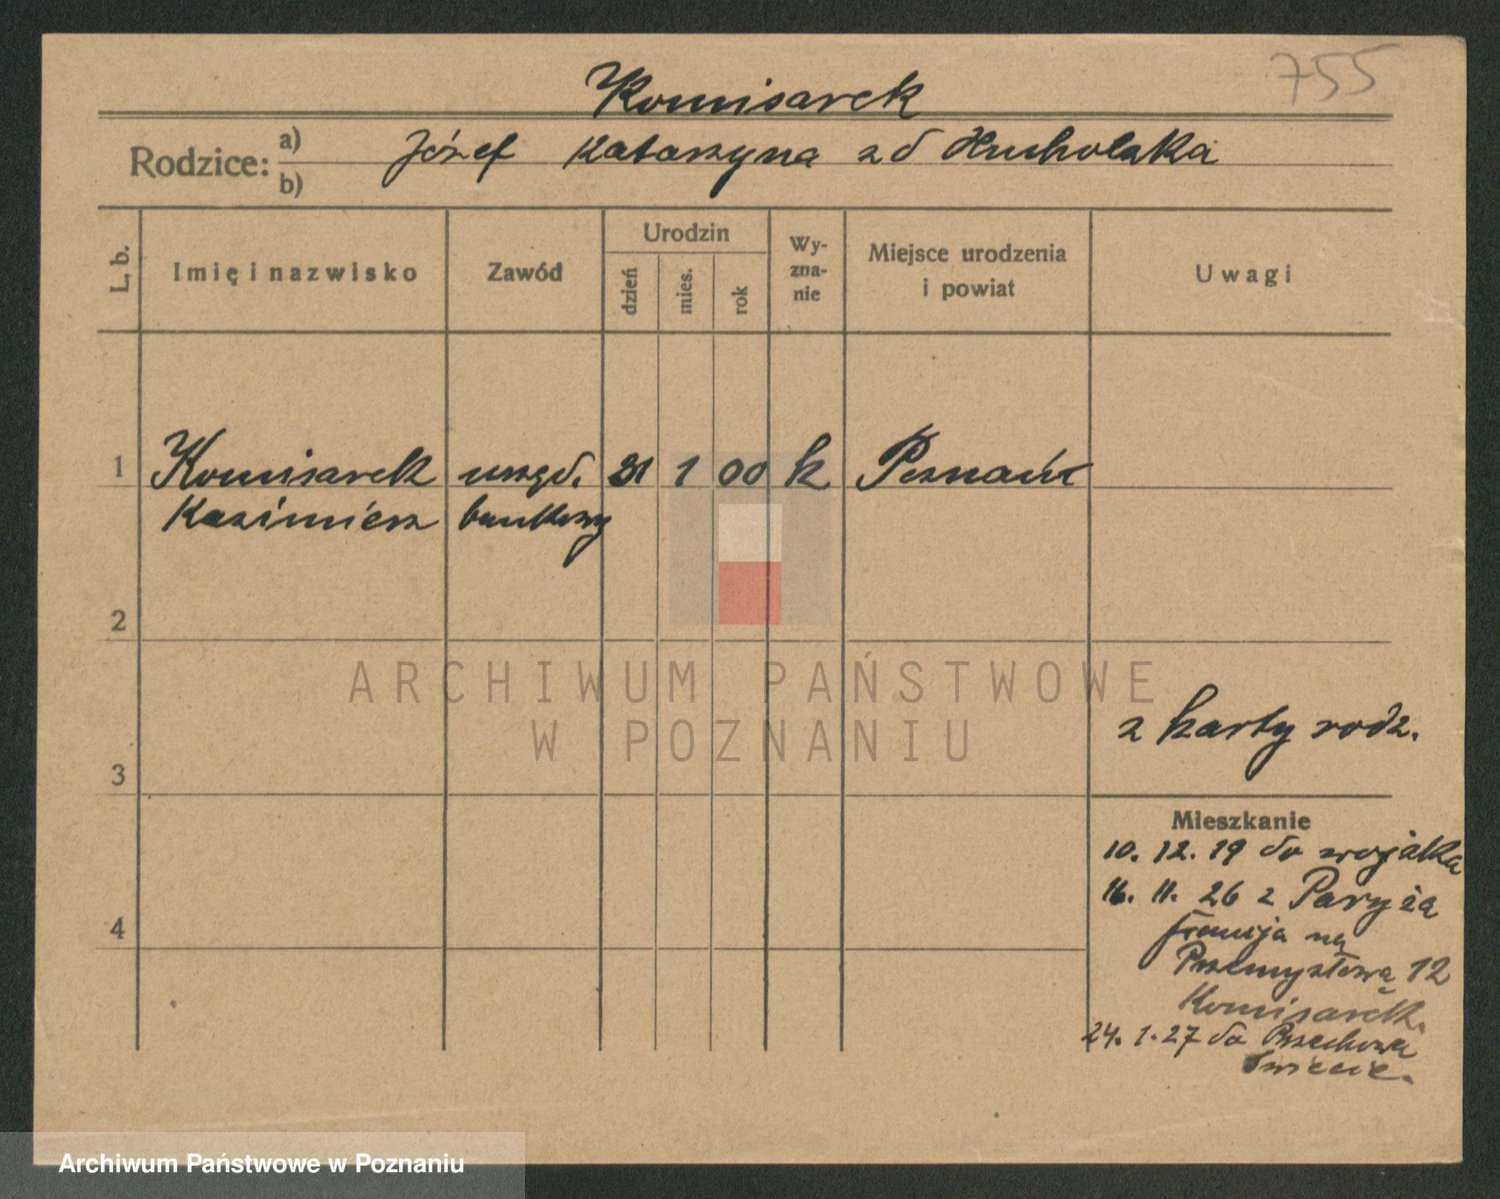 755
Komisarek
Rodzice: a) Józef Katarzyna zd Hucholska
b)
L. b.
Imię i nazwisko
Zawód
Urodzin
dzień
mies.
rok
Wy-
zna-
nie
Miejsce urodzenia
i powiat
Uwagi
1 Komisarek urzęd. 21 1 00 k Poznań
Kazimierz bankowy
2
3
4
z karty rodz.
Mieszkanie
10. 12. 19 do wojska
16. 11. 26 z Paryża
francja na
Przemysłową 12
Komisarek.
24. 1. 27 do Przechowa
Świecie.
ARCHIWUM PAŃSTWOWE
W POZNANIU
Archiwum Państwowe w Poznaniu